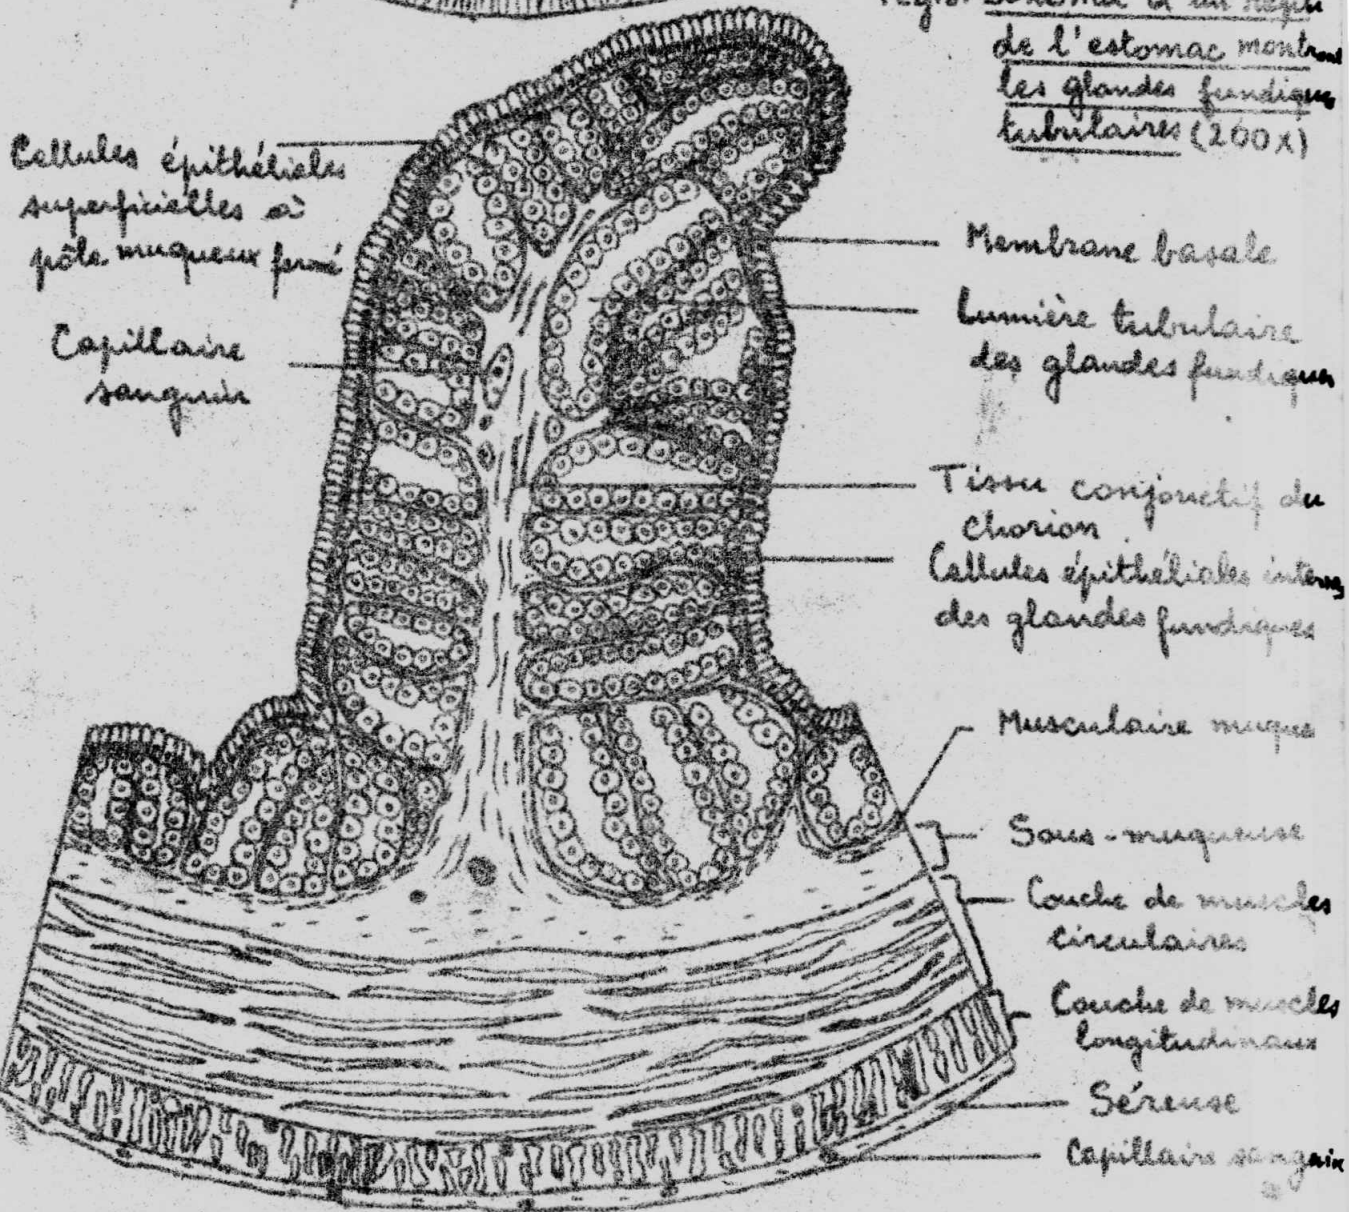 Schéma d'un
de l'estomac
les glandes
tubulaires (200x)
Cellules épithéliales
superficielles à
pôle muqueux fermé
Capillaire
sanguin
Membrane basale
Lumière tubulaire
des glandes fundiques
Tissu conjonctif du
chorion
Cellules épithéliales internes
des glandes fundiques
Musculaire
Sous-muqueuse
Couche de muscles
circulaires
Couche de muscles
longitudinaux
Séreuse
Capillaire sanguin